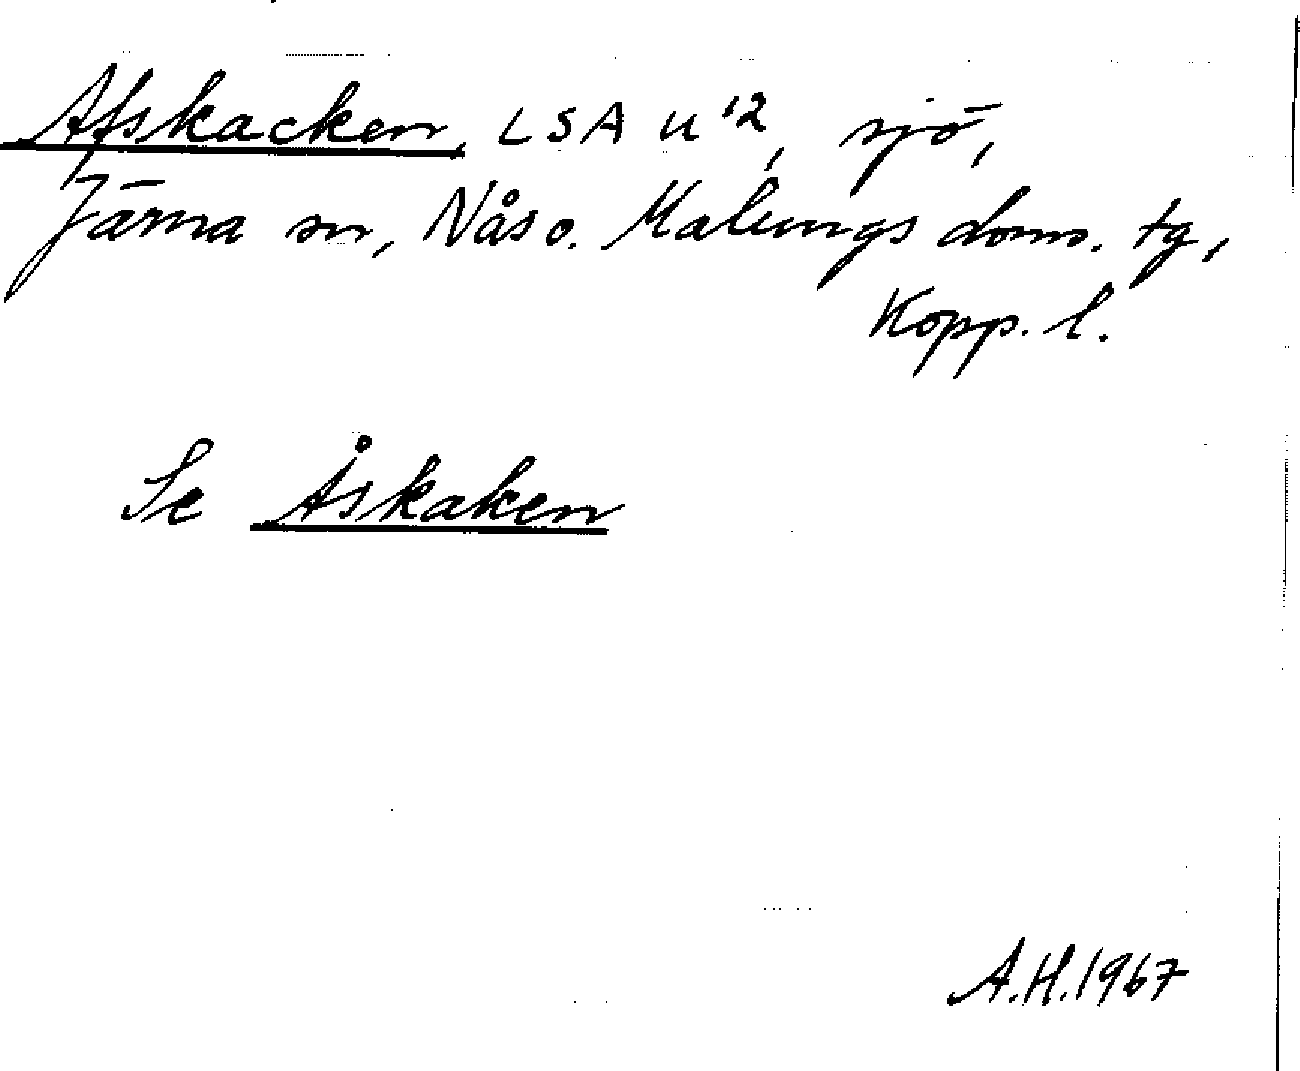 Afskacken, LSA U'2, sjö,
Järna sn, Nås o. Malungs doms. tg,
Kopp. l.
Se Åskaken
A.H. 1967